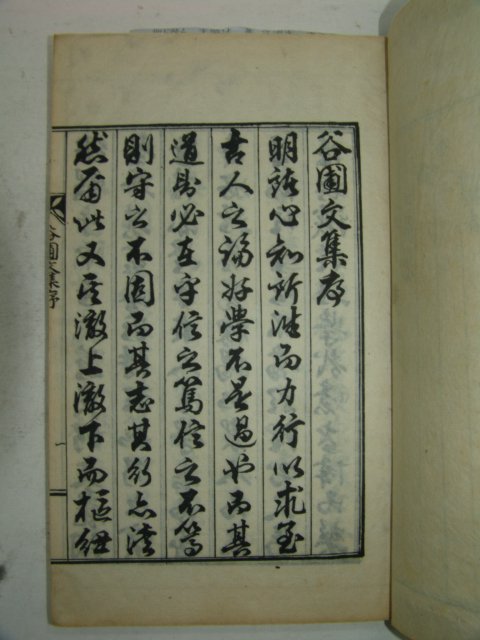 谷圃文集序
明諸心知所往而力行以求至
古人之論好學不是過也而其
道則必在乎信之篤信之不篤
則守之不固而其志其行亦
然 此又 徹上徹下而樞紐
谷圃文集序
一